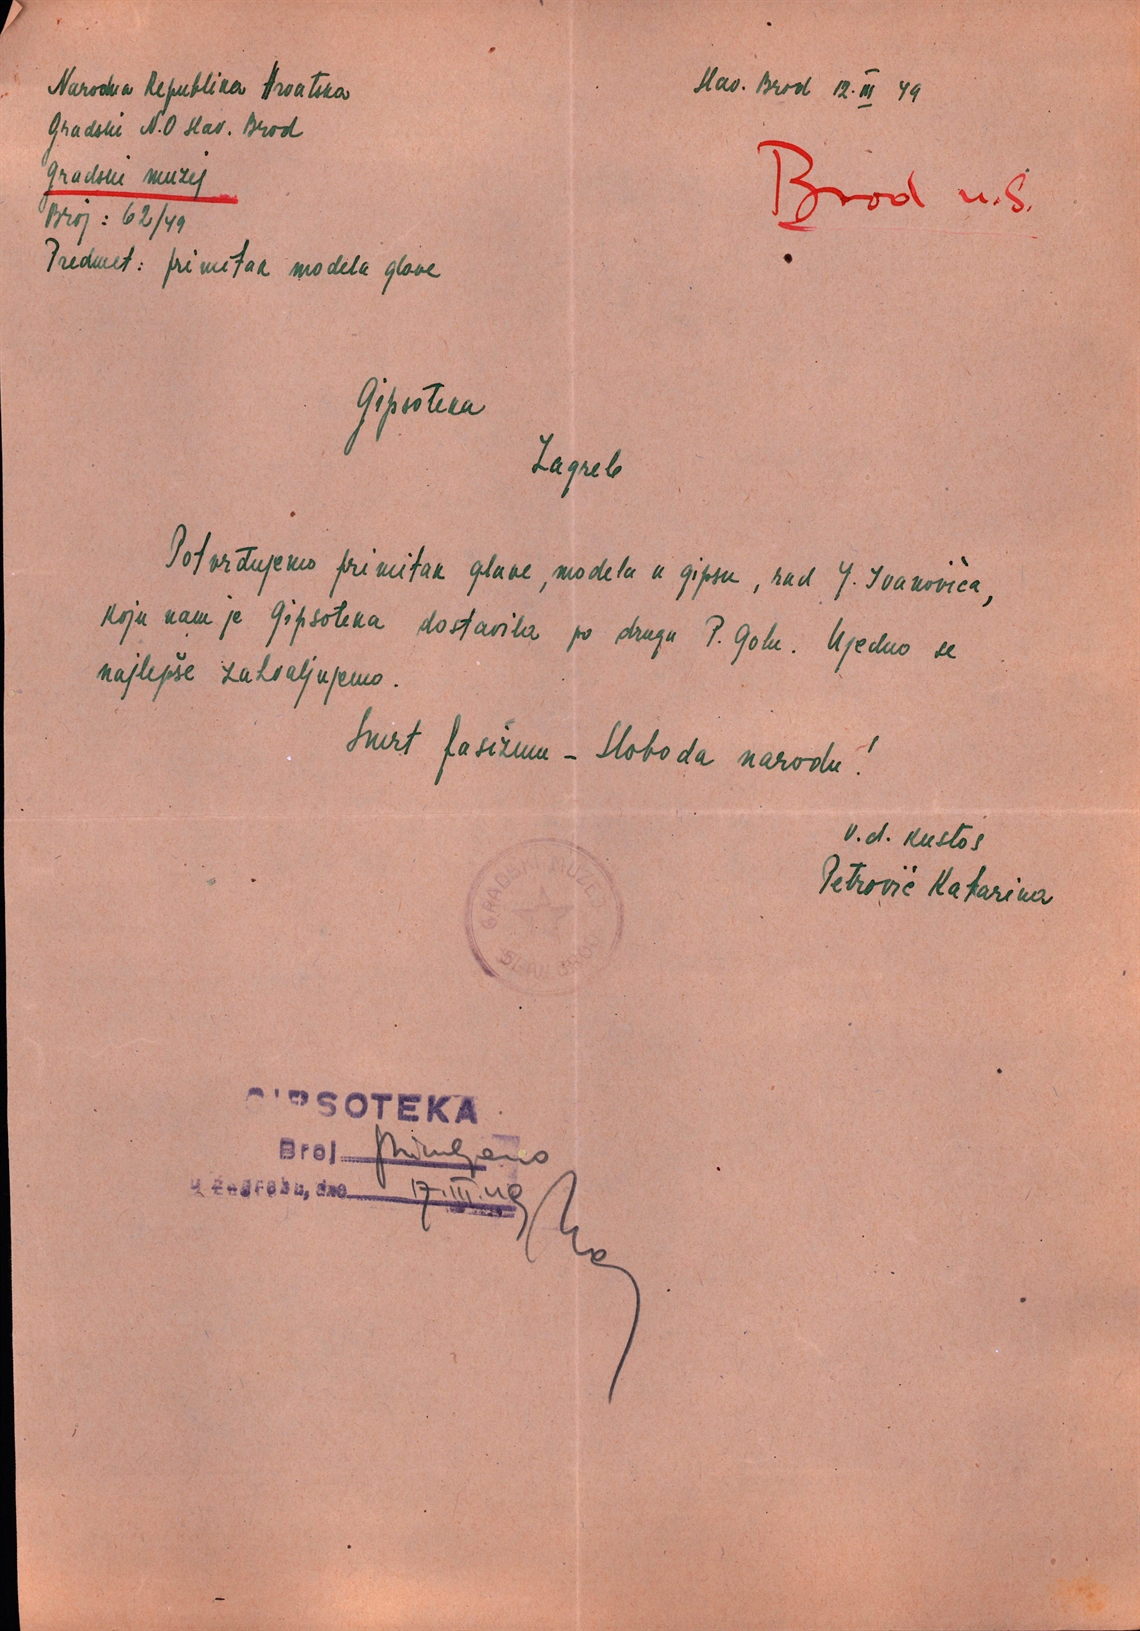 Narodna Republika Hrvatska
Slav. Brod 12. III 49
Gradski N.O Slav. Brod
Gradski muzej
Brod n.S.
Broj : 62/49
Predmet : primitak modela glave
Gipsoteka
Zagreb
Potvrđujemo primitak glave, modela u gipsu, rad J. Ivanovića,
koju nam je Gipsoteka dostavila po drugu P. Golu. Ujedno se
najlepše zahvaljujemo.
Smrt fašizmu - Sloboda narodu!
v.d. kustos
Petrović Katarina
GRADSKI MUZEJ
SLAV. BROD
GIPSOTEKA
Broj primljeno
U Zagrebu, dne 17. III. 49